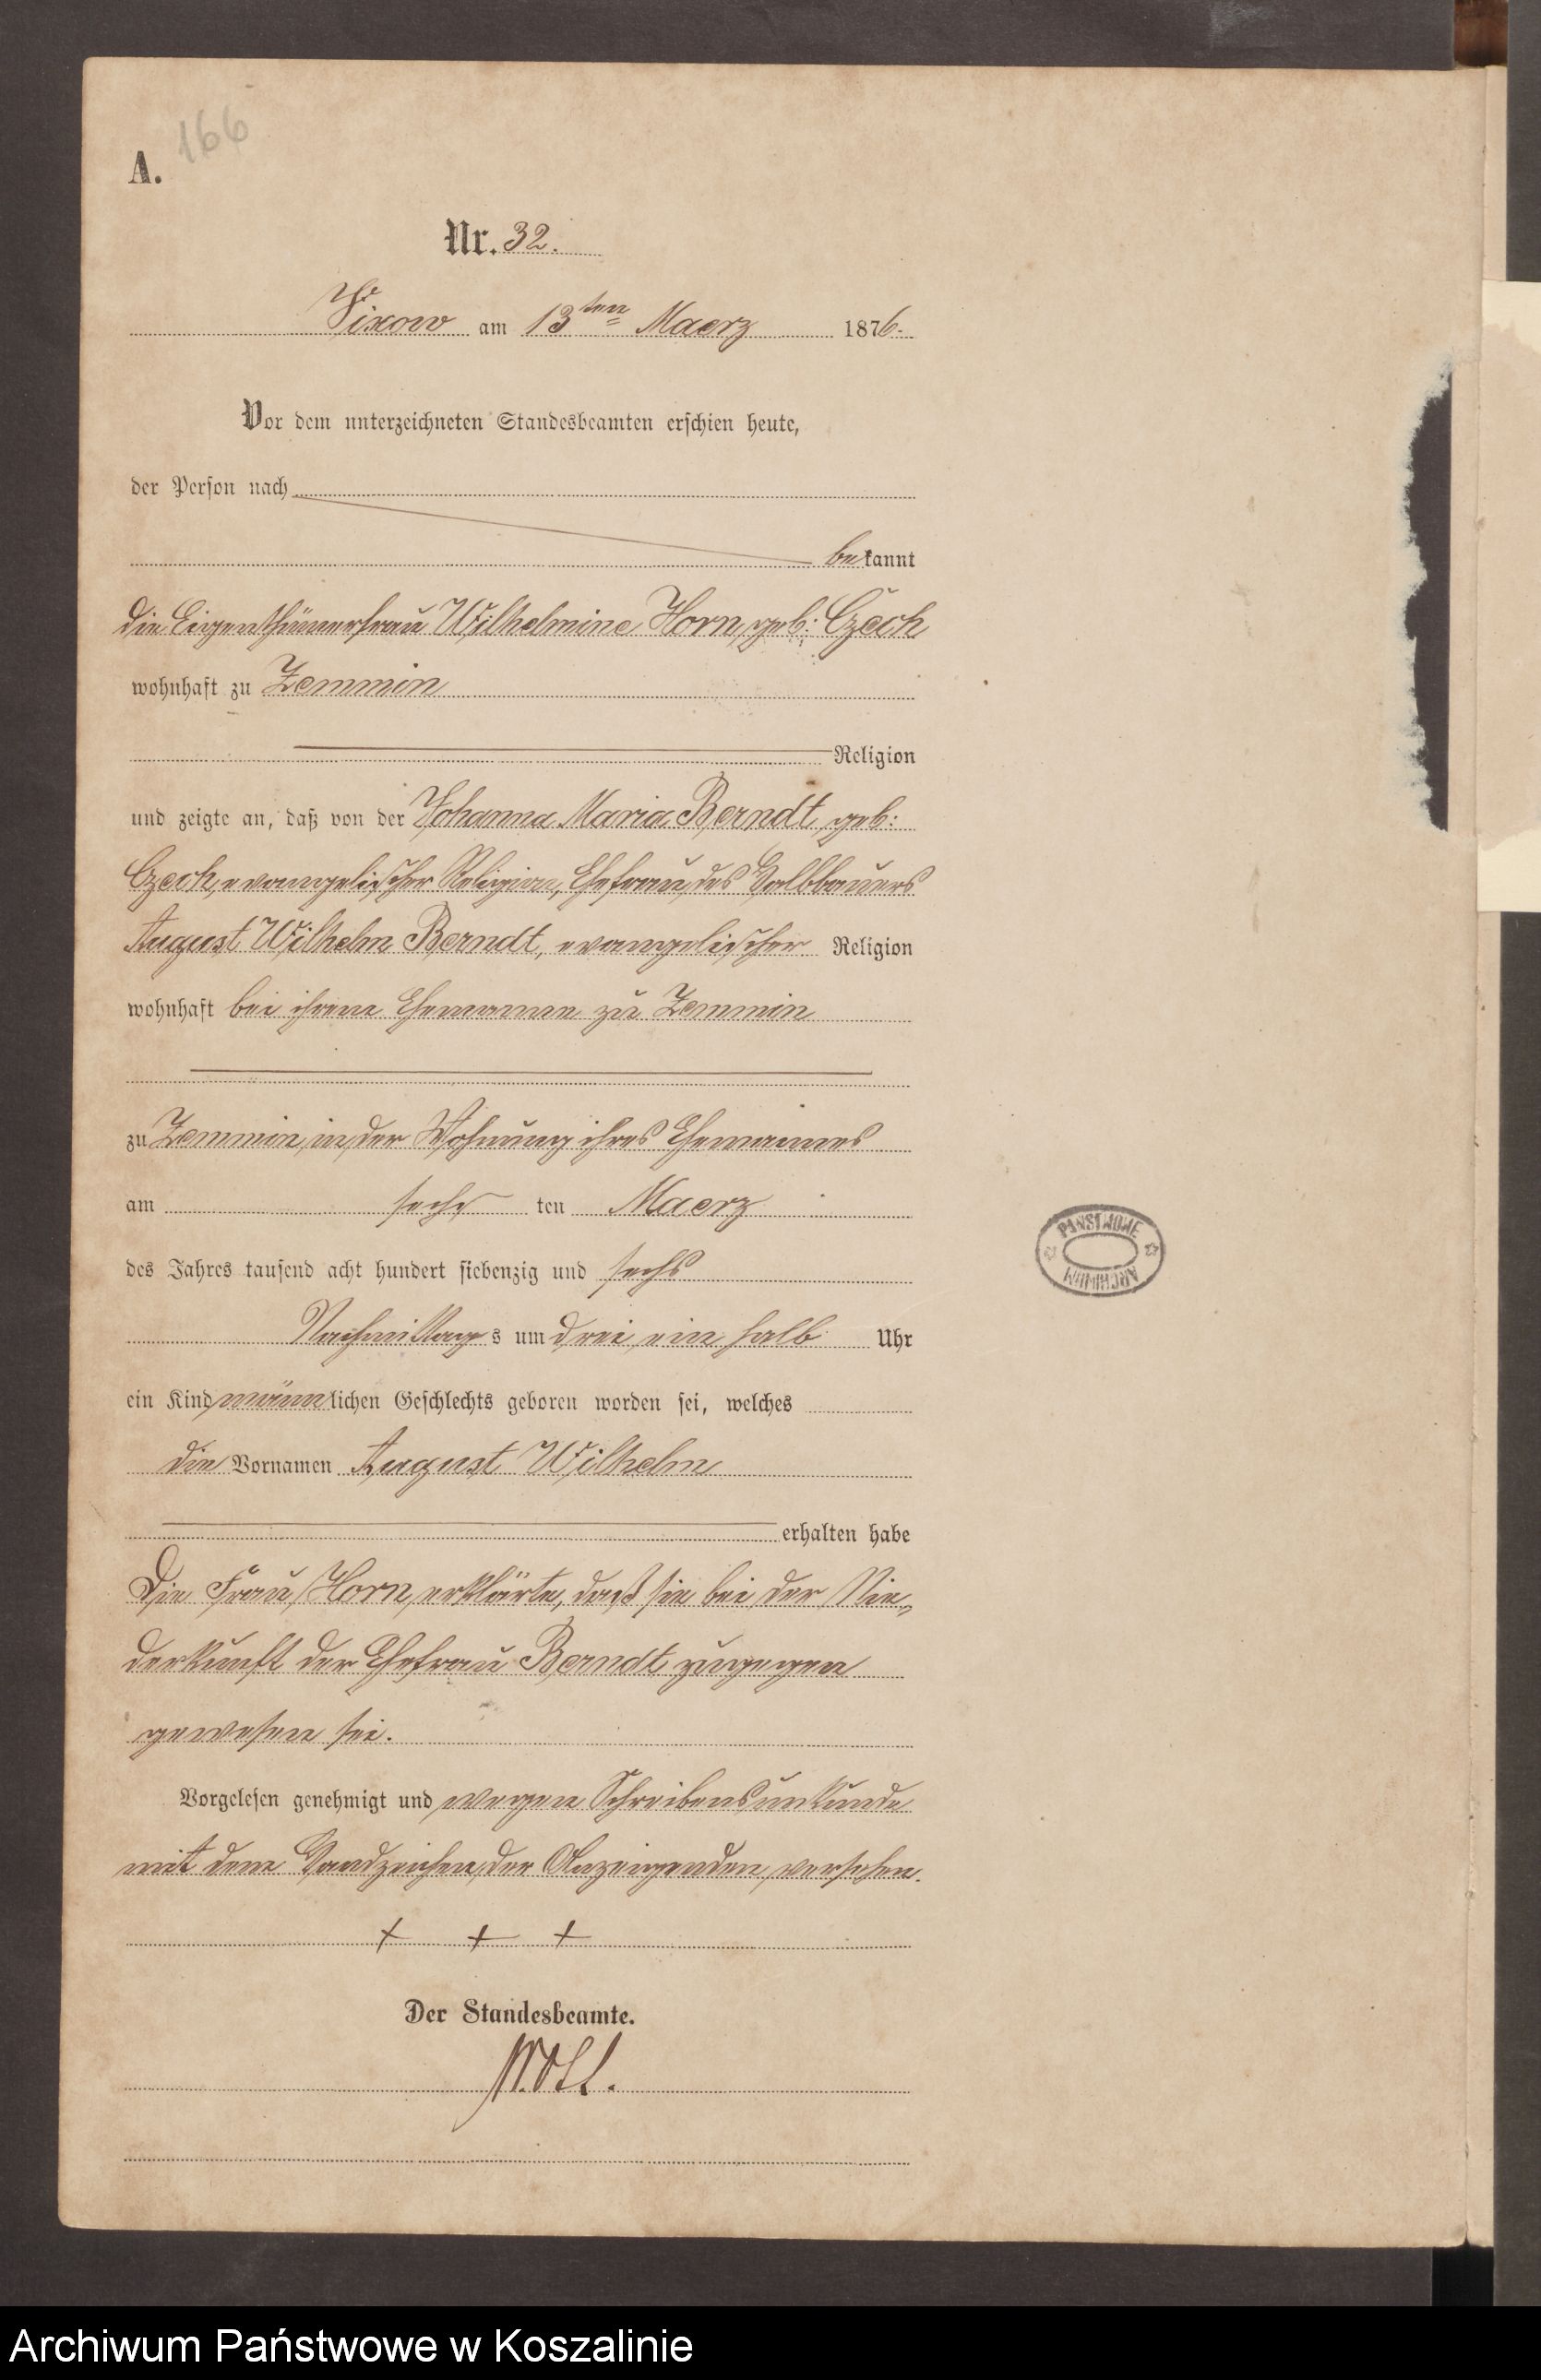 166
A.
Nr. 32.
Vixow am 13ten Maerz 1876.
Vor dem unterzeichneten Standesbeamten erschien heute,
der Person nach
bekannt
die Eigenthümerfrau Wilhelmine Horn, geb: Czech
wohnhaft zu Zemmin
Religion
und zeigte an, daß von der Johanna Maria Berndt, geb:
Czech, evangelischer Religion, Ehefrau des Halbbauers
August Wilhelm Berndt, evangelischer Religion
wohnhaft bei ihrem Ehemanne zu Zemmin
zu Zemmin, in der Wohnung ihres Ehemannes
am sechs ten Maerz
des Jahres tausend acht hundert siebenzig und sechs
Nachmittags um drei ein halb Uhr
ein Kind männlichen Geschlechts geboren worden sei, welches
die Vornamen August Wilhelm
erhalten habe
Die Frau Horn erklärte, daß sie bei der Nie-
derkunft der Ehefrau Berndt zugegen
gewesen sei.
Vorgelesen genehmigt und wegen Schreibensunkunde
mit dem Handzeichen der Anzeigenden versehen.
+ + +
Der Standesbeamte.
PAŃSTWOWE
ARCHIWUM
Archiwum Państwowe w Koszalinie